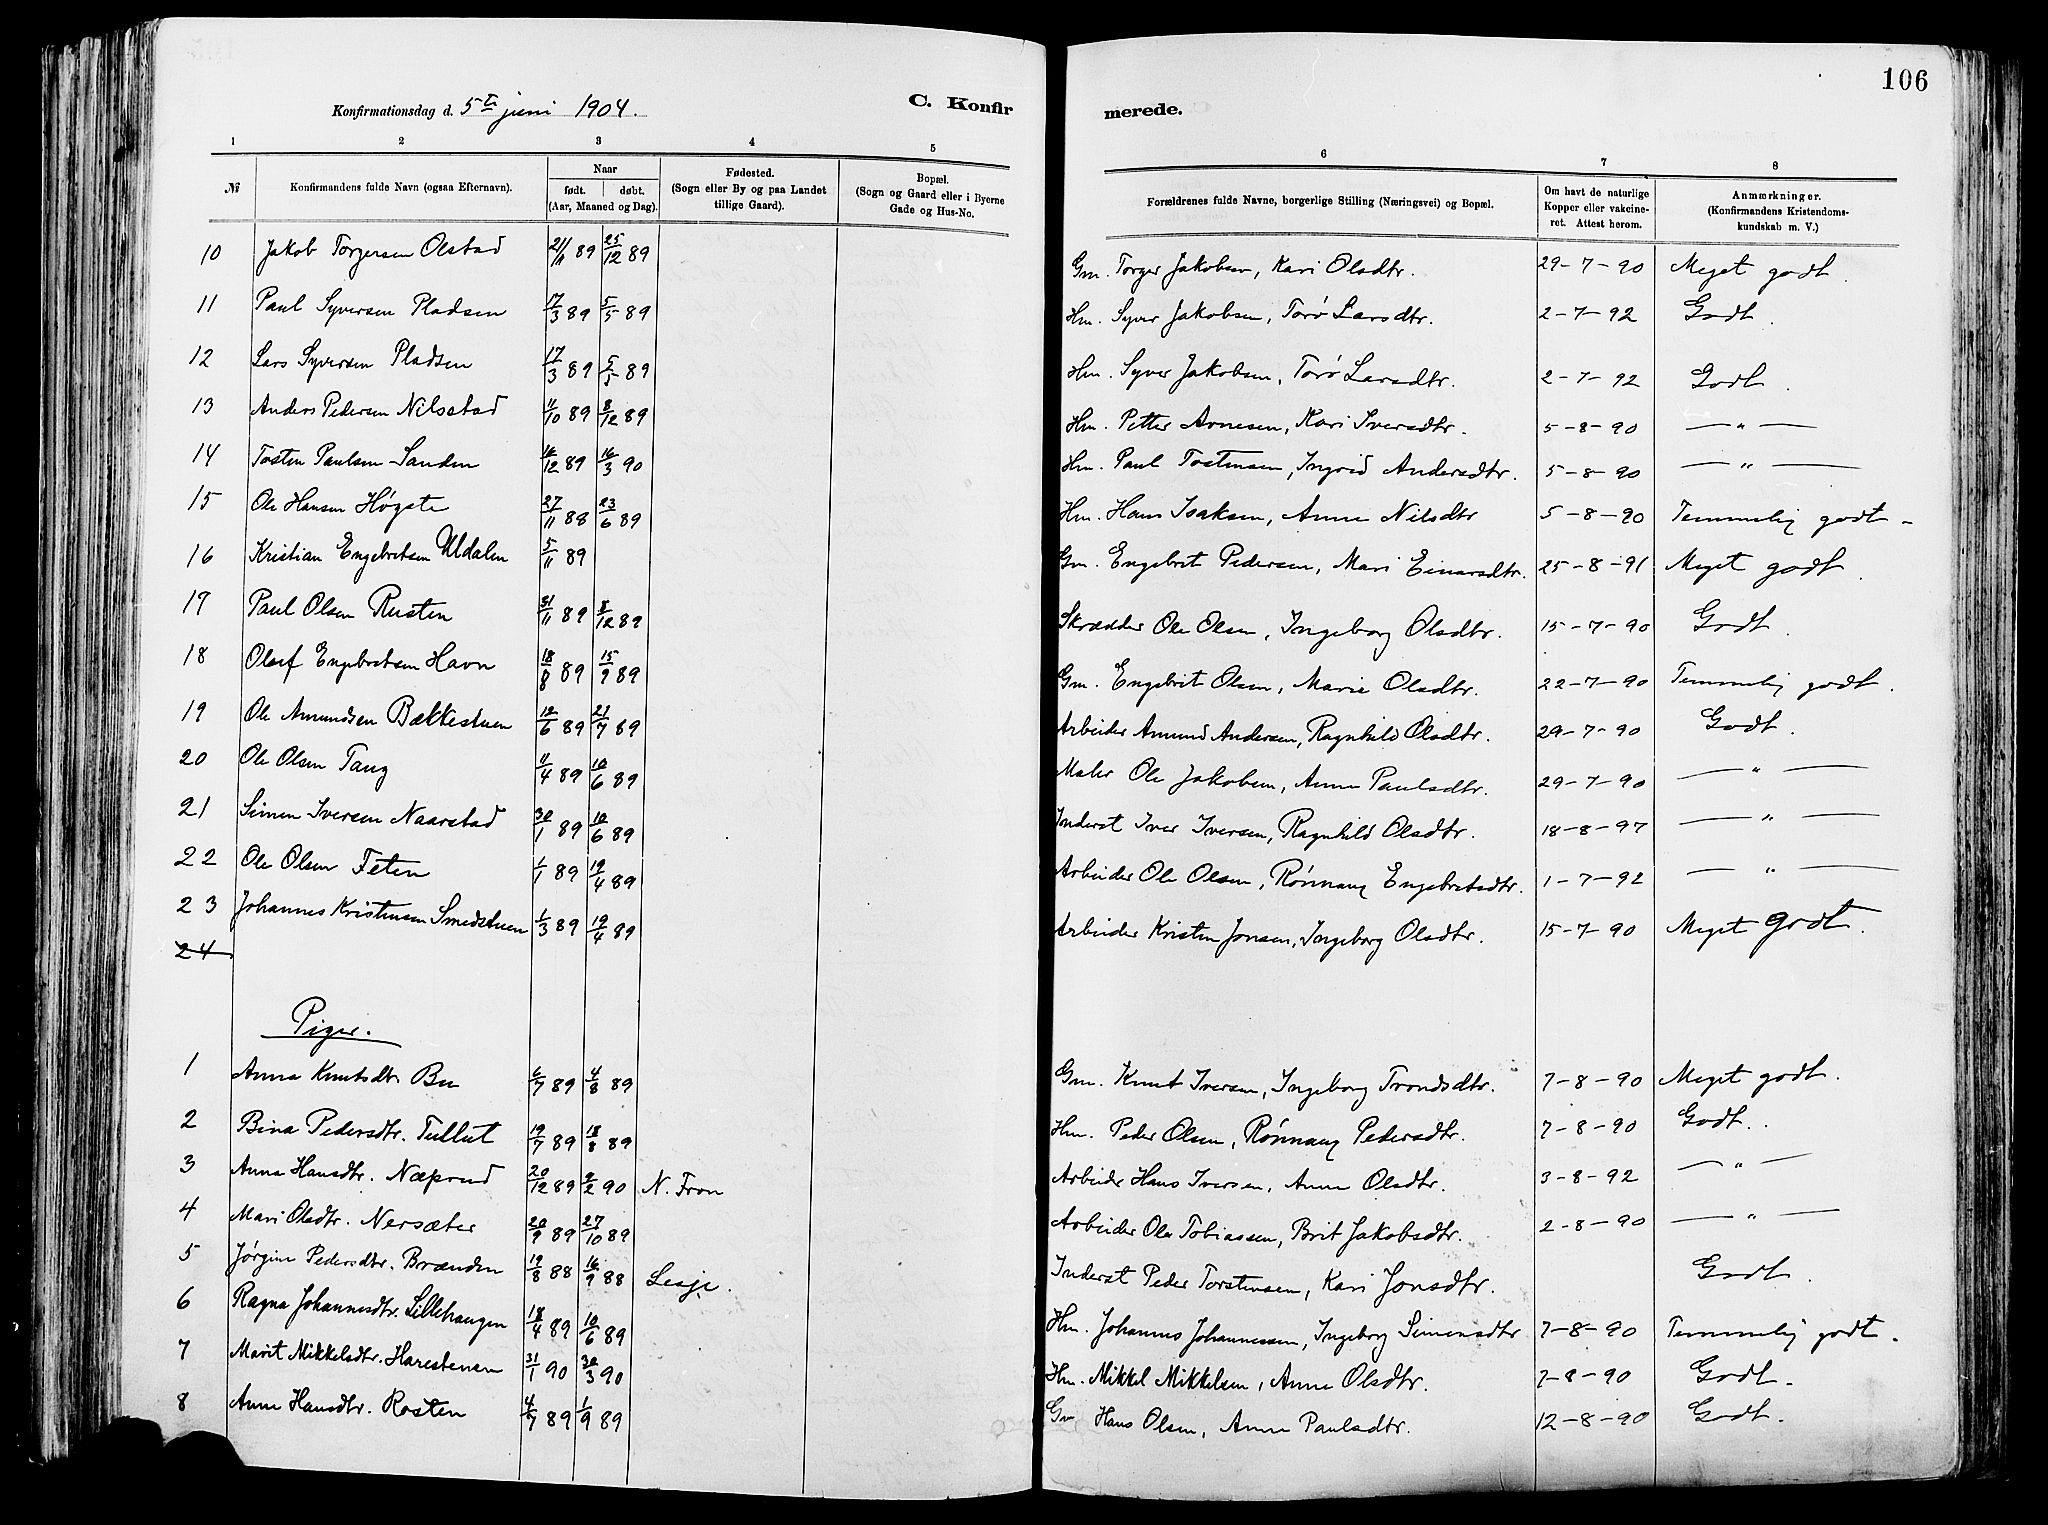 106
Konfirmationsdag d. 5te juni 1904.
C. Konfirmerede.
1 2 3 4 5 6 7 8
№
Konfirmandens fulde Navn (ogsaa Efternavn).
Naar
født. døbt.
(Aar, Maaned og Dag).
Fødested.
(Sogn eller By og paa Landet
tillige Gaard).
Bopæl.
(Sogn og Gaard eller i Byerne
Gade og Hus-No.
Forældrenes fulde Navne, borgerlige Stilling (Næringsvei) og Bopæl.
Om havt de naturlige
Kopper eller vakcine-
ret. Attest herom.
Anmærkninger.
(Konfirmandens Kristendoms-
kundskab m. V.)
10 Jakob Torgersen Olstad 21/11 89 25/12 89 Gm. Torger Jakobsen, Kari Olsdtr. 29-7-90 Meget godt.
11 Paul Syversen Pladsen 17/3 89 5/5 89 Hm. Syver Jakobsen, Torø Larsdtr. 2-7-92 Godt.
12 Lars Syversen Pladsen 17/3 89 5/5 89 Hm. Syver Jakobsen, Torø Larsdtr. 2-7-92 Godt.
13 Anders Pedersen Nilsstad 11/10 89 8/12 89 Hm. Petter Arnesen, Kari Iversdtr. 5-8-90 — " —
14 Tosten Paulsen Sanden 16/12 89 16/3 90 Hm. Paul Tostensen, Ingrid Andersdtr. 5-8-90 — " —
15 Ole Hansen Høgste 27/11 88 23/6 89 Hm. Hans Isaksen, Anne Nilsdtr 5-8-90 Temmelig godt.
16 Kristian Engebretsen Uldalen 5/11 89 Gm. Engebrit Pedersen, Mari Einarsdtr. 25-8-91 Meget godt.
17 Paul Olsen Rusten 31/11 89 8/12 89 Skrædder Ole Olsen, Ingeborg Olsdtr. 15-7-90 Godt.
18 Oluf Engebretsen Havn 18/8 89 15/9 89 Gm. Engebrit Olsen, Marie Olsdtr. 22-7-90 Temmelig godt.
19 Ole Amundsen Bækkestuen 12/6 89 21/7 89 Arbeider Amund Andersen, Ragnhild Olsdtr. 29-7-90 Godt.
20 Ole Olsen Tang 11/4 89 10/6 89 Maler Ole Jakobsen, Anne Paulsdtr. 29-7-90 — " —
21 Simen Iversen Naarstad 30/1 89 10/6 89 Inderst Iver Iversen, Ragnhild Olsdtr. 18-8-97 — " —
22 Ole Olsen Feten 1/1 89 19/4 89 Arbeider Ole Olsen, Rønnaug Engebretsdtr. 1-7-92 — " —
23 Johannes Kristensen Smedstuen 1/3 89 19/4 89 Arbeider Kristen Jonsen, Ingeborg Olsdtr. 15-7-90 Meget godt.
24
Piger.
1 Anna Knutsdtr. Bu 6/7 89 4/8 89 Gm. Knut Iversen, Ingeborg Trondsdtr. 7-8-90 Meget godt.
2 Bina Pedersdtr. Tullut 19/7 89 18/8 89 Hm. Peder Olsen, Rønnaug Pedersdtr. 7-8-90 Godt.
3 Anna Hansdtr. Næprud 20/12 89 2/2 90 N. Fron Arbeider Hans Iversen, Anne Olsdtr. 3-8-92 — " —
4 Mari Olsdtr. Nersæter 20/9 89 27/10 89 Arbeider Ole Tobiassen, Brit Jakobsdtr. 2-8-90 — " —
5 Jørgine Pedersdtr. Brænden 19/8 88 16/9 88 Lesje. Inderst Peder Torstensen, Kari Jonsdtr. Godt.
6 Ragna Johannesdtr. Lillehaugen 18/4 89 10/6 89 Hm. Johannes Johannessen, Ingeborg Simensdtr 7-8-90 Temmelig godt.
7 Marit Mikkelsdtr. Harestenen 31/1 90 30/3 90 Hm. Mikkel Mikkelsen, Anne Olsdtr. 7-8-90 Godt.
8 Anne Hansdtr. Rosten 4/7 89 1/9 89 Gm Hans Olsen, Anne Paulsdtr. 12-8-90 Godt.